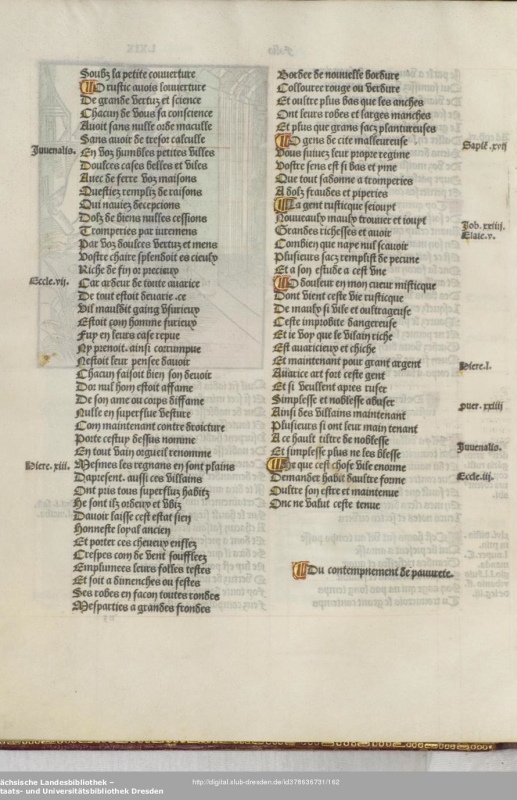 Soubz la petite couuerture
O rustic auois louuerture
De grande vertuz et science
Chacun de vous sa conscience
Auoit sans nulle orde maculle
Sans auoir de tresor calculle
Juuenalis.
En voz humbles petites villes
Doulces cases belles et viles
Auec de ferre voz maisons
Questiez rempliz de raisons
Qui nauiez decepcions
Dolz de biens nulles cessions
Tromperies par iuremens
Par voz doulces vertuz et mens
Vostre chaire splendoit es cieulx
Riche de fin or precieux
Eccle. vii.
Car ardeur de toute auarice
De tout estoit
Vil mauldit gaing vsurieux
Estoit com homme furieux
Fuy en leurs case repue
Ny prenoit. ainsi corrumpue
Nestoit leur pensee dauoit
Chacun faisoit bien son deuoit
Dor nul hom estoit affame
De son ame ou corps diffame
Nulle en superflue vesture
Com maintenant contre droicture
Porte cestup dessus nomme
En tout vain orgueil renomme
Hiere. xiii.
Mesmes les regnans en sont plains
Dapresent. aussi ces villains
Ont pris tous superfluz habitz
He sont ilz ordeux et vbiz
Dauoir laisse cest estat sien
Honneste loyal ancien
Et porter ces cheueux enflez
Crespes com de vent soufflez
Emplumees leurs folles testes
Et soit a dimenches ou festes
Ses robes en facon toutes rondes
Mesparties a grandes frondes
Border de nouuelle bordure
Collouree rouge ou verdure
Et oultre plus bas que les anches
Ont leurs robes et larges manches
Et plus que grans sacz plantureuses
O gens de cite malleureuse
Sapie. xvii
Vous suiuez leur propre regime
Vostre sens est si bas et yme
Que tout sadonne a tromperies
A dolz fraudes et piperies
La gent rusticque seioupt
Nouueaulx maulx trouuer et ioupt
Job. xxiiii.
Grandes richesses et auoir
Esaie. v.
Combien que naye nul scauoir
Plusieurs sacz remplist de pecune
Et a son estude a cest vne
O douleur en mon cueur misticque
Dont vient ceste vie rusticque
De maulx si vile et oultrageuse
Ceste improbite dangereuse
Et ie voy que le vilain riche
Est auaricieux et chiche
Et maintenant pour grant argent
Hiere. l.
Auarice art fort ceste gent
Et si veullent apres ruser
Simplesse et noblesse abuser
puer. xxiiii
Ainsi des villains maintenant
Plusieurs si ont leur main tenant
A ce hault tiltre de noblesse
Juuenalis.
Et simplesse plus ne les blesse
He que cest chose vile enorme
Demander habit daultre forme
Eccle. iii.
Oultre son estre et maintenue
Onc ne valut ceste tenue
Du contempnement de pauurete.
Sächsische Landesbibliothek –
Staats- und Universitätsbibliothek Dresden
http://digital.slub-dresden.de/id378636731/162